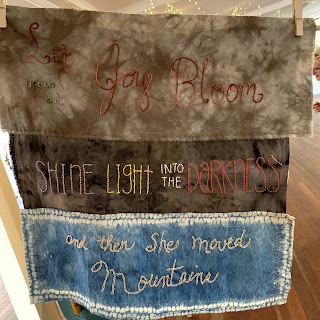 Let
Joy Bloom
SHINE LIGHT INTO THE DARKNESS
and then She moved
Mountains